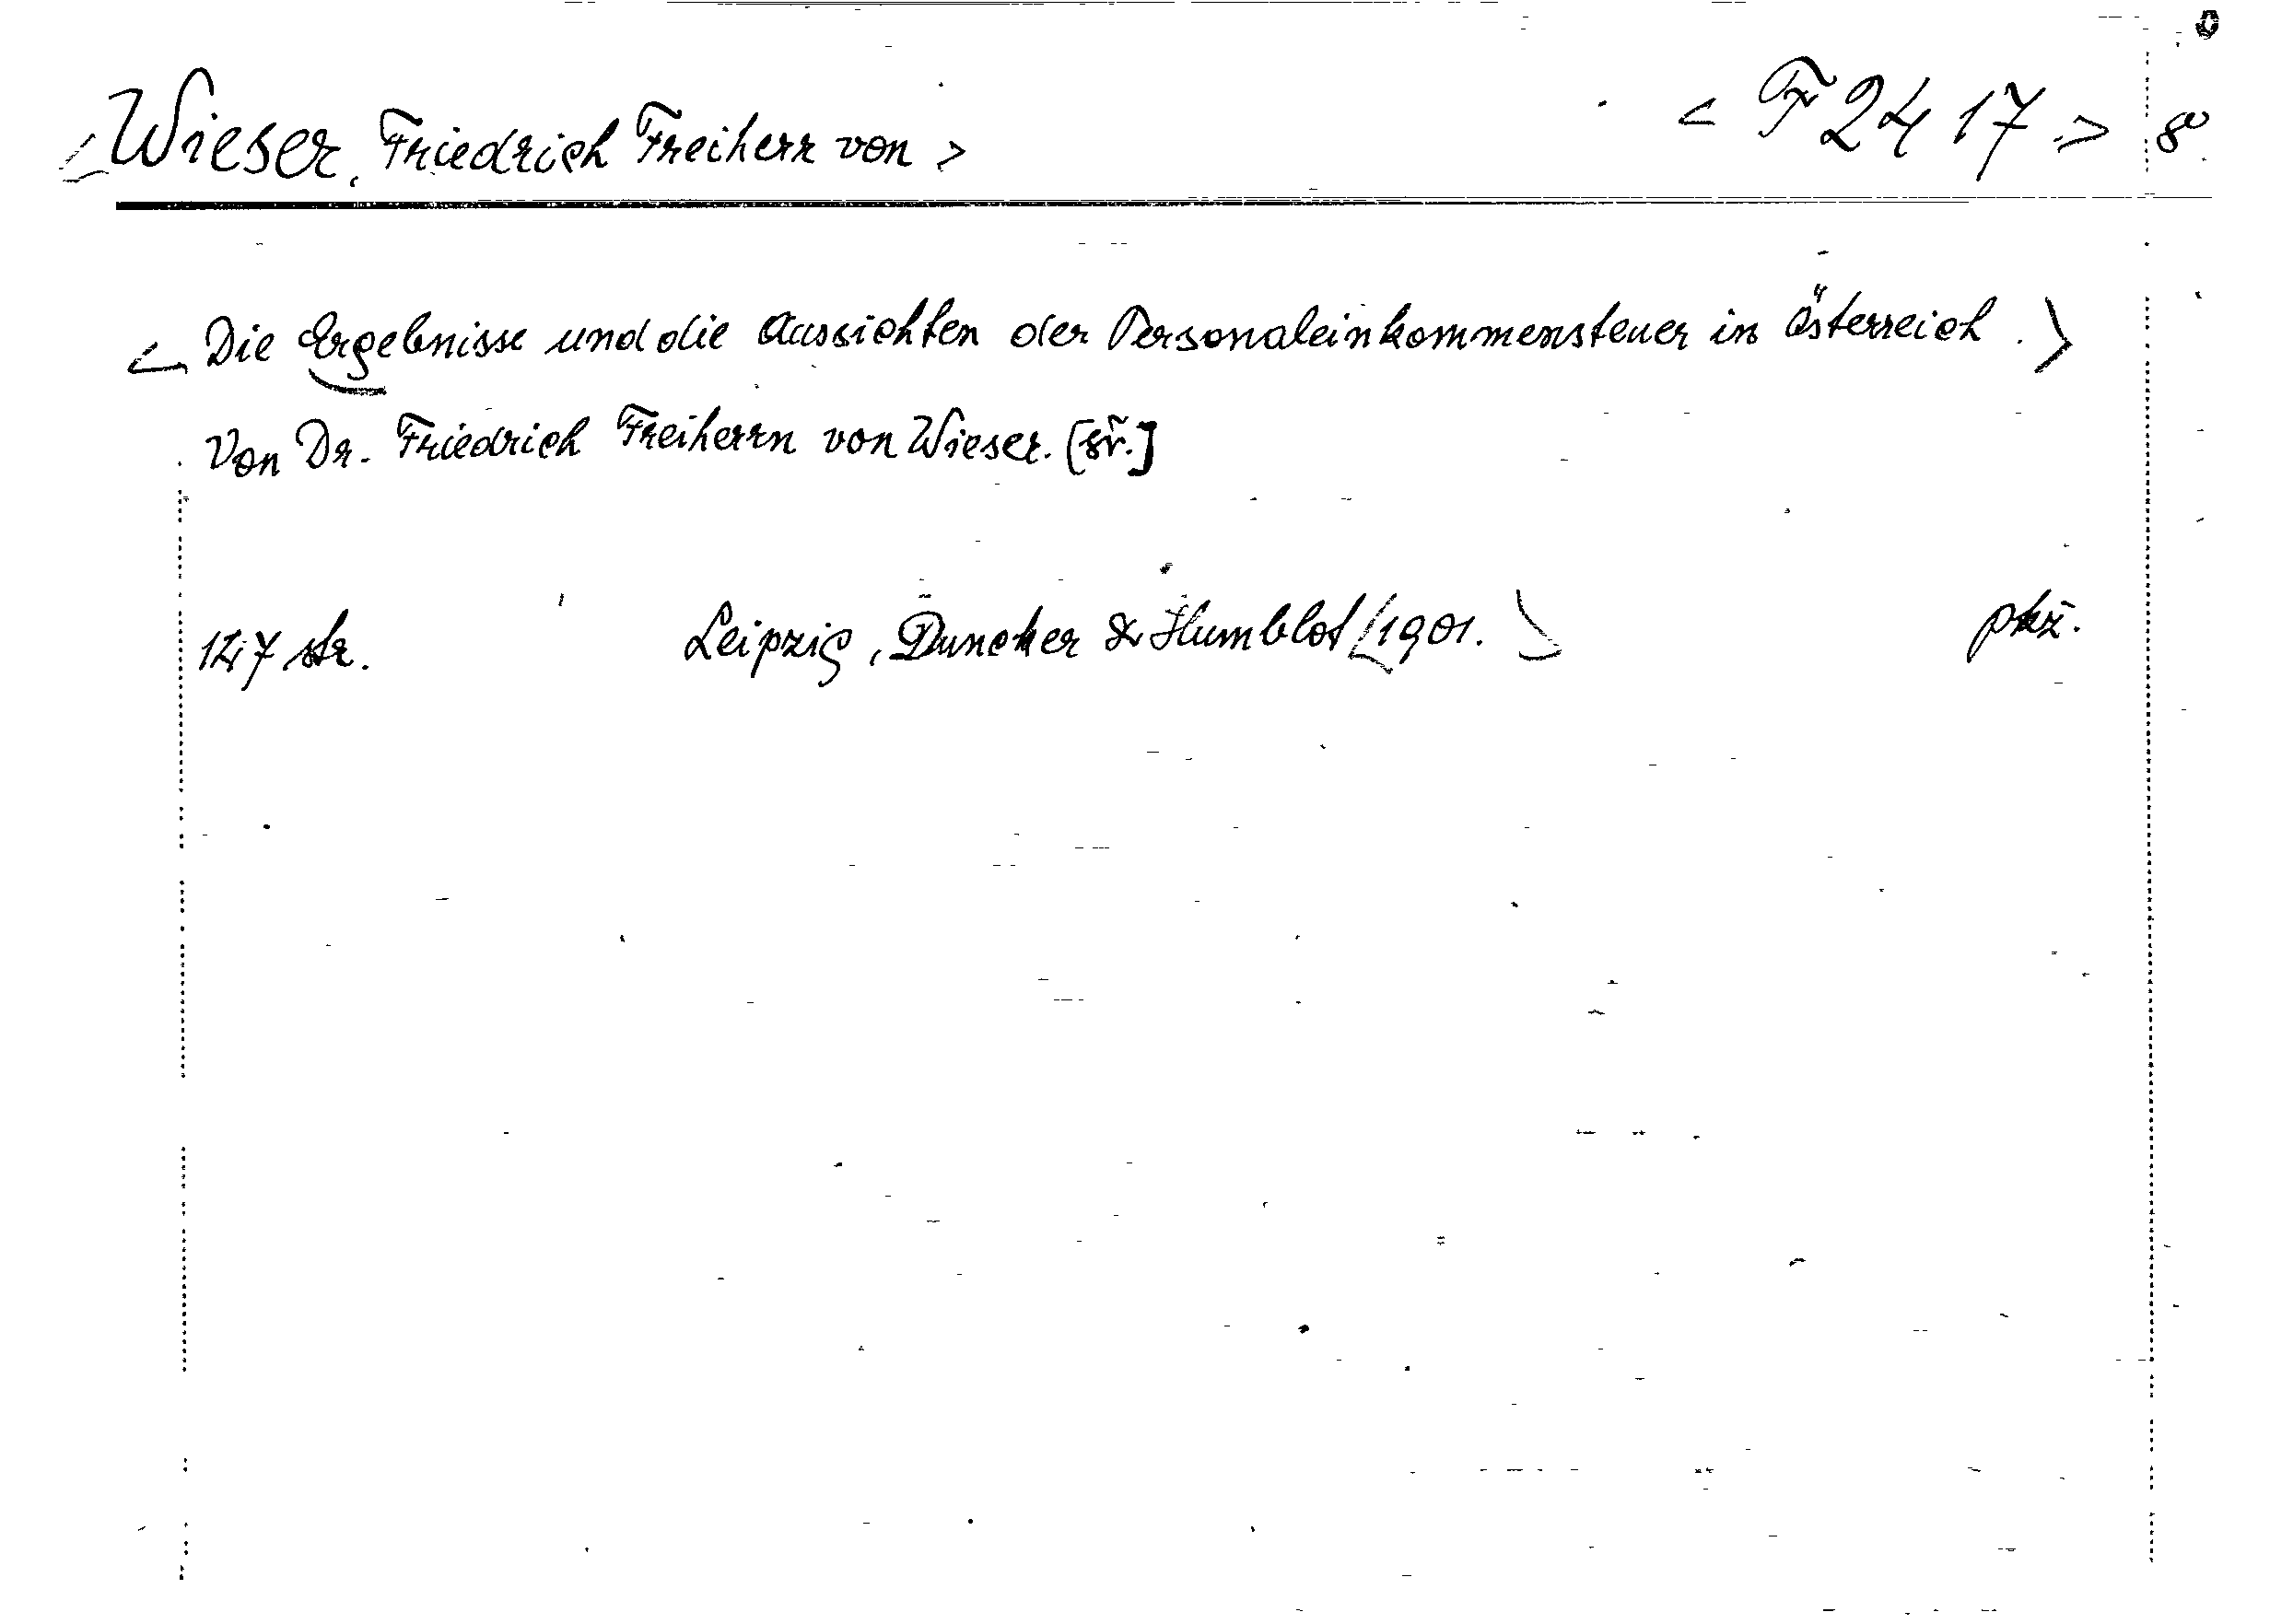 <Wieser, Friedrich Freiherr von> <F 24 17> 8°
<Die Ergebnisse und die Aussichten der Personaleinkommensteuer in Österreich.>
Von Dr. Friedrich Freiherrn von Wieser. [gř.]
147 str. Leipzig, Duncker & Humblot [1901.> pkž.